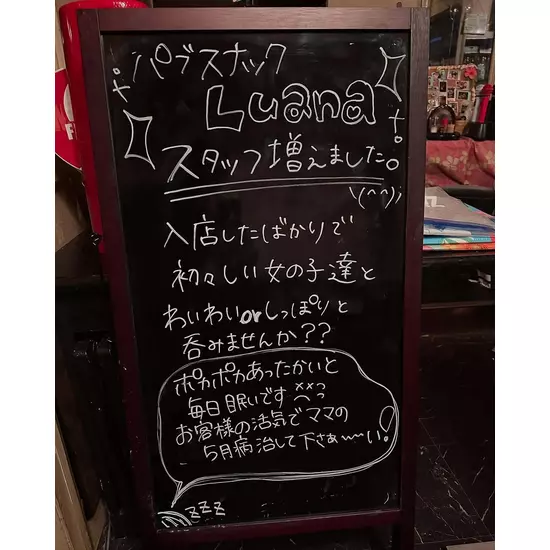 パブスナック
Luana
スタッフ増えました。
\(^^)/
入店したばかりで
初々しい女の子達と
わいわいorしっぽりと
呑みませんか??
ポカポカあったかいと
毎日眠いです
お客様の活気でママの
5月病治して下さぁ〜〜い!
zzz